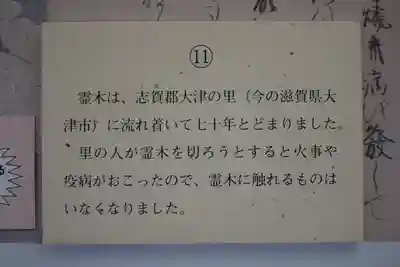 ⑪
霊木は、志賀郡大津の里（今の滋賀県大
津市）に流れ着いて七十年とどまりました。
里の人が霊木を切ろうとすると火事や
疫病がおこったので、霊木に触れるものは
いなくなりました。